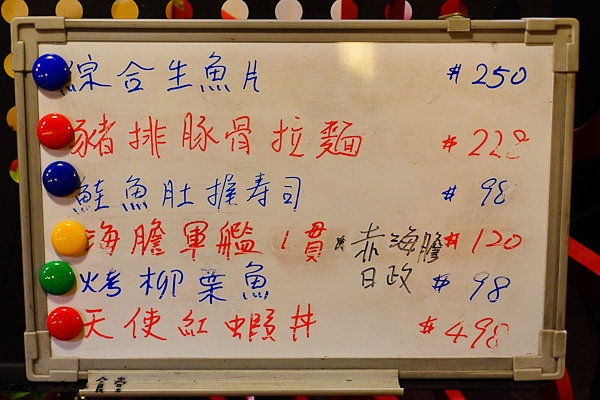 綜合生魚片 #250
豬排豚骨拉麵 #228
鮭魚肚握壽司 #98
海膽軍艦1貫 赤海膽 #120
日政
烤柳葉魚 #98
天使紅蝦丼 #498
食堂